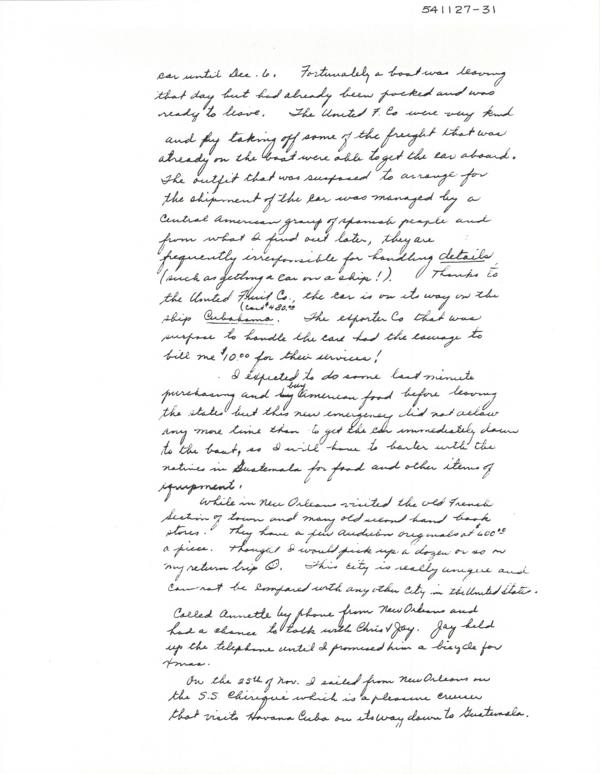 541127-31
car until Dec. 6. Fortunately a boat was leaving
that day but had already been packed and was
ready to leave. The United F. Co were very kind
and by taking off some of the freight that was
already on the boat were able to get the car aboard.
The outfit that was susposed to arrange for
the shipment of the car was managed by a
Central American group of spanish people and
from what I find out later, they are
frequently irresponsible for handling details
(such as getting a car on a ship!). Thanks to
the United Fruit Co., the car is on its way on the
(cost $480.00
ship Cubahama. The exporter Co that was
suspose to handle the care had the courage to
bill me $10.00 for their services!
I expected to do some last minute
buy
purchasing and American food before leaving
the states but this new emergency did not allow
any more time than to get the car immediately down
to the boat, so I will have to barter with the
natives in Guatemala for food and other items of
equipment.
While in New Orleans visited the old French
Section of town and many old second hand book
stores. They have a few Audubon originals at $600.00
a piece. Thought I would pick up a dozen or so on
my return trip. This city is really unique and
can not be compared with any other city in the United States.
Called Annette by phone from New Orleans and
had a chance to talk with Chris & Jay. Jay held
up the telephone until I promised him a bicycle for
Xmas.
On the 25th of Nov. I sailed from New Orleans on
the S.S. Chiriqui which is a pleasure cruiser
that visits Havana Cuba on its way down to Guatemala.